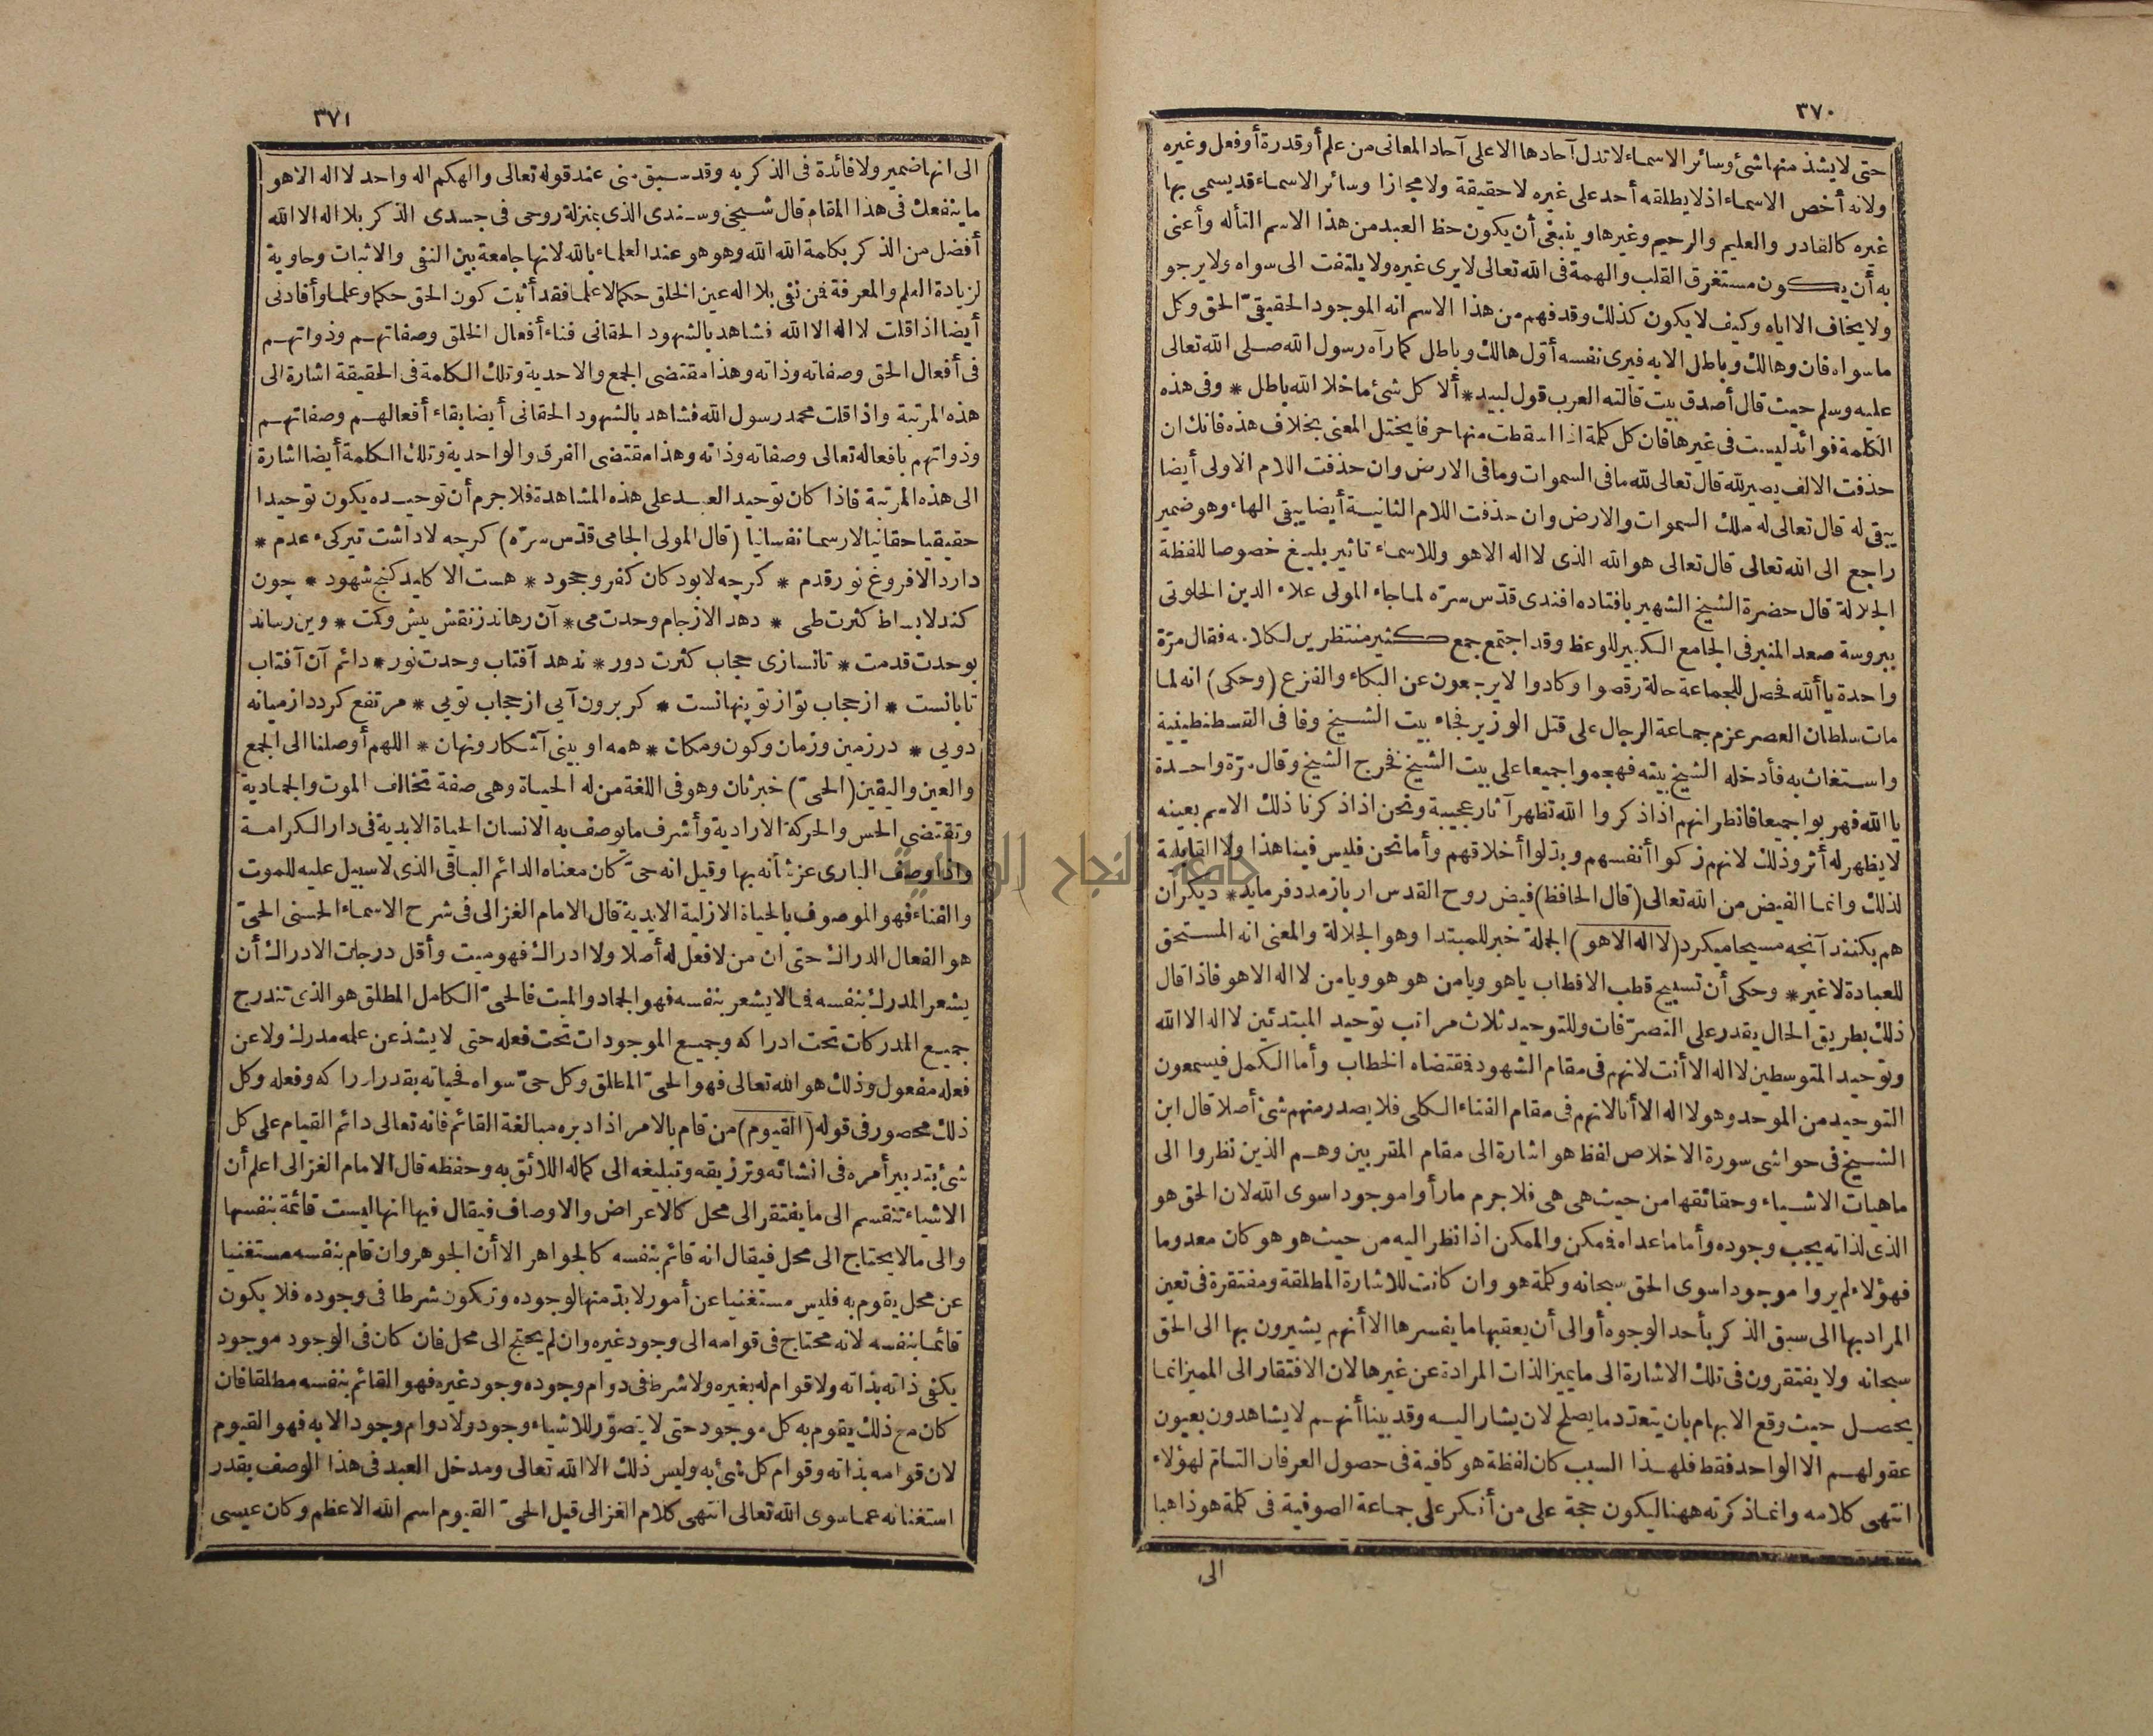 ٣٧٠
حتى لا يشذ منها شئ وسائر الاسماء لا تدل آحادها الا على آحاد المعانى من علم أو قدرة أو فعل وغيره
ولانه أخص الاسماء اذ لا يطلقه أحد على غيره لا حقيقة ولا مجازا وسائر الاسماء قد يسمى بها
غيره كالقادر والعليم والرحيم وغيرها وينبغى أن يكون حظ العبد من هذا الاسم التأله وأعنى
به أن يكون مستغرق القلب والهمة فى الله تعالى لا يرى غيره ولا يلتفت الى سواه ولا يرجو
ولا يخاف الا اياه وكيف لا يكون كذلك وقد فهم من هذا الاسم انه الموجود الحقيقىّ الحق وكل
ما سواه فان وهالك وباطل الا به فيرى نفسه أوّل هالك وباطل كما رآه رسول الله صلى الله تعالى
عليه وسلم حيث قال أصدق بيت قالته العرب قول لبيد * ألا كل شئ ما خلا الله باطل * وفى هذه
الكلمة فوائد ليست فى غيرها فان كل كلمة اذا اسقطت منها حرفا يختل المعنى بخلاف هذه فانك ان
حذفت الالف يصير لله قال تعالى لله ما فى السموات وما فى الارض وان حذفت اللام الاولى أيضا
يبقى له قال تعالى له ملك السموات والارض وان حذفت اللام الثانية أيضا يبقى الهاء وهو ضمير
راجع الى الله تعالى قال تعالى هو الله الذى لا اله الا هو وللاسماء تأثير بليغ خصوصا للفظة
الجلالة قال حضرة الشيخ الشهير بافتاده افندى قدّس سرّه لما جاء المولى علاء الدين الخلوتى
ببروسة صعد المنبر فى الجامع الكبير للوعظ وقد اجتمع جمع كثير منتظرين لكلامه فقال مرّة
واحدة يا ألله فحصل للجماعة حالة رقصوا وكادوا لا يرجعون عن البكاء والفزع (وحكى) انه لما
مات سلطان العصر عزم جماعة الرجال على قتل الوزير فجاء بيت الشيخ وفا فى القسطنطينية
واستغاث به فأدخله الشيخ بيته فهجموا جميعا على بيت الشيخ فخرج الشيخ وقال مرّة واحدة
يا الله فهربوا جميعا فانظر انهم اذا ذكروا الله تظهر آثار عجيبة ونحن اذا ذكرنا ذلك الاسم بعينه
لا يظهر له أثر وذلك لانهم زكوا أنفسهم وبدلوا أخلاقهم وأما نحن فليس فينا هذا ولا القابلية
لذلك وانما الفيض من الله تعالى (قال الحافظ) فيض روح القدس ار باز مدد فرمايد * ديكران
هم بكنند آنچه مسيحا ميكرد (لا اله الا هو) الجملة خبر للمبتدا وهو الجلالة والمعنى انه المستحق
للعبادة لا غير * وحكى أن تسبيح قطب الاقطاب يا هو ويا من هو هو ويا من لا اله الا هو فاذا قال
ذلك بطريق الحال يقدر على التصرّفات وللتوحيد ثلاث مراتب توحيد المبتدئين لا اله الا الله
وتوحيد المتوسطين لا اله الا أنت لانهم فى مقام الشهود فمقتضاه الخطاب وأما الكمل فيسمعون
التوحيد من الموحد وهو لا اله الا أنا لانهم فى مقام الفناء الكلى فلا يصدر منهم شئ أصلا قال ابن
الشيخ فى حواشى سورة الاخلاص لفظ هو اشارة الى مقام المقربين وهم الذين نظروا الى
ماهيات الاشياء وحقائقها من حيث هى هى فلا جرم ما رأوا موجودا سوى الله لان الحق هو
الذى لذاته يجب وجوده وأما ما عداه فممكن والممكن اذا نظر اليه من حيث هو هو كان معدوما
فهؤلاء لم يروا موجودا سوى الحق سبحانه وكلمة هو وان كانت للاشارة المطلقة ومفتقرة فى تعين
المراد بها الى سبق الذكر بأحد الوجوه أو الى أن يعقبها ما يفسرها الا أنهم يشيرون بها الى الحق
سبحانه ولا يفتقرون فى تلك الاشارة الى ما يميز الذات المرادة عن غيرها لان الافتقار الى المميز انما
يحصل حيث وقع الابهام بان يتعدّد ما يصلح لان يشار اليه وقد بينا أنهم لا يشاهدون بعيون
عقولهم الا الواحد فقط فلهذا السبب كان لفظة هو كافية فى حصول العرفان التامّ لهؤلاء
انتهى كلامه وانما ذكرته ههنا ليكون حجة على من أنكر على جماعة الصوفية فى كلمة هو ذاهبا
الى
٣٧١
الى انها ضمير ولا فائدة فى الذكر به وقد سبق منى عند قوله تعالى والهكم اله واحد لا اله الا هو
ما ينفعك فى هذا المقام قال شيخى وسندى الذى بمنزلة روحى فى جسدى الذكر بلا اله الا الله
أفضل من الذكر بكلمة الله الله وهو هو عند العلماء بالله لانها جامعة بين النفى والاثبات وحاوية
لزيادة العلم والمعرفة فمن نفى بلا اله عين الخلق حكما لا علما فقد أثبت كون الحق حكما وعلما وأفادنى
أيضا اذا قلت لا اله الا الله فشاهد بالشهود الحقانى فناء أفعال الخلق وصفاتهم وذواتهم
فى أفعال الحق وصفاته وذاته وهذا مقتضى الجمع والاحدية وتلك الكلمة فى الحقيقة اشارة الى
هذه المرتبة واذا قلت محمد رسول الله فشاهد بالشهود الحقانى أيضا بقاء أفعالهم وصفاتهم
وذواتهم بافعاله تعالى وصفاته وذاته وهذا مقتضى الفرق والواحدية وتلك الكلمة أيضا اشارة
الى هذه المرتبة فاذا كان توحيد العبد على هذه المشاهدة فلا جرم أن توحيده يكون توحيدا
حقيقيا حقانيا لا رسما نفسانيا (قال المولى الجامى قدّس سرّه) كرچه لا داشت تيركىء عدم *
دارد الا فروغ نور قدم * كرچه لا بود كان كفر وجحود * هست الا كليد كنج شهود * چون
كند لا بساط كثرت طى * دهد الا ز جام وحدت مى * آن رهاند ز نقش بيش وكمت * وين رساند
بوحدت قدمت * تا نسازى حجاب كثرت دور * ندهد آفتاب وحدت نور * دائم آن آفتاب
تابانست * از حجاب تو از تو پنهانست * كر برون آيى از حجاب تويى * مرتفع كردد از ميانه
دويى * در زمين وزمان وكون ومكان * همه او بينى آشكار ونهان * اللهم أوصلنا الى الجمع
والعين واليقين (الحىّ) خبر ثان وهو فى اللغة من له الحياة وهى صفة تخالف الموت والجمادية
وتقتضى الحس والحركة الارادية وأشرف ما يوصف به الانسان الحياة الابدية فى دار الكرامة
واذا وصف البارى عز شأنه بها وقيل انه حىّ كان معناه الدائم الباقى الذى لا سبيل عليه للموت
والفناء فهو الموصوف بالحياة الازلية الابدية قال الامام الغزالى فى شرح الاسماء الحسنى الحىّ
هو الفعال الدراك حتى ان من لا فعل له أصلا ولا ادراك فهو ميت وأقل درجات الادراك أن
يشعر المدرك بنفسه فما لا يشعر بنفسه فهو الجماد والميت فالحىّ الكامل المطلق هو الذى تندرج
جميع المدركات تحت ادراكه وجميع الموجودات تحت فعله حتى لا يشذ عن علمه مدرك ولا عن
فعله مفعول وذلك هو الله تعالى فهو الحىّ المطلق وكل حىّ سواه فحياته بقدر ادراكه وفعله وكل
ذلك محصور فى قوله (القيوم) من قام بالامر اذا دبره مبالغة القائم فانه تعالى دائم القيام على كل
شئ بتدبير أمره فى انشائه وترزيقه وتبليغه الى كماله اللائق به وحفظه قال الامام الغزالى اعلم أن
الاشياء تنقسم الى ما يفتقر الى محل كالاعراض والاوصاف فيقال فيها انها ليست قائمة بنفسها
والى ما لا يحتاج الى محل فيقال انه قائم بنفسه كالجواهر الا أن الجوهر وان قام بنفسه مستغنيا
عن محل يقوم به فليس مستغنيا عن أمور لا بدّ منها لوجوده وتكون شرطا فى وجوده فلا يكون
قائما بنفسه لانه محتاج فى قوامه الى وجود غيره وان لم يحتج الى محل فان كان فى الوجود موجود
يكفى ذاته بذاته ولا قوام له بغيره ولا شرط فى دوام وجوده وجود غيره فهو القائم بنفسه مطلقا فان
كان مع ذلك يقوم به كل موجود حتى لا يتصوّر للاشياء وجود ولا دوام وجود الا به فهو القيوم
لان قوامه بذاته وقوام كل شئ به وليس ذلك الا الله تعالى ومدخل العبد فى هذا الوصف بقدر
استغنائه عما سوى الله تعالى انتهى كلام الغزالى قيل الحىّ القيوم اسم الله الاعظم وكان عيسى
جامعة النجاح الوطنية